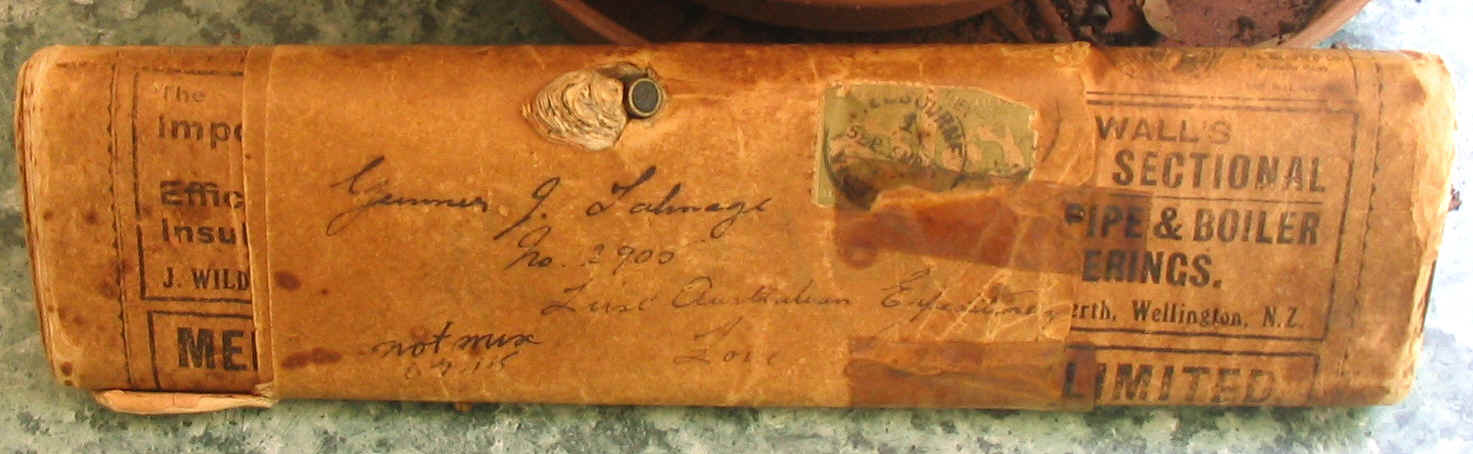 The
Impo
Effic
Insul
J. WILD
ME
MELBOURNE
Gunner J. Talmage
No. 2900
First Australian Expeditionary
Force
not mine
WALL'S
SECTIONAL
PIPE & BOILER
ERINGS.
erth, Wellington, N.Z.
LIMITED